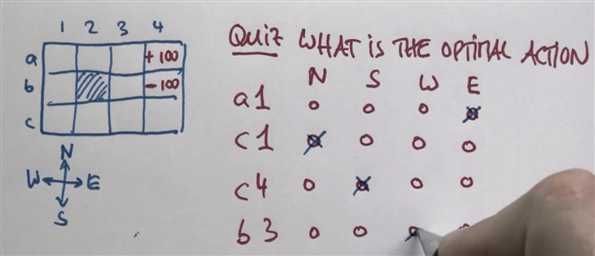 1 2 3 4
a +100
b -100
c
N
W E
S
QUIZ WHAT IS THE OPTIMAL ACTION
N S W E
a1
c1
c4
b3